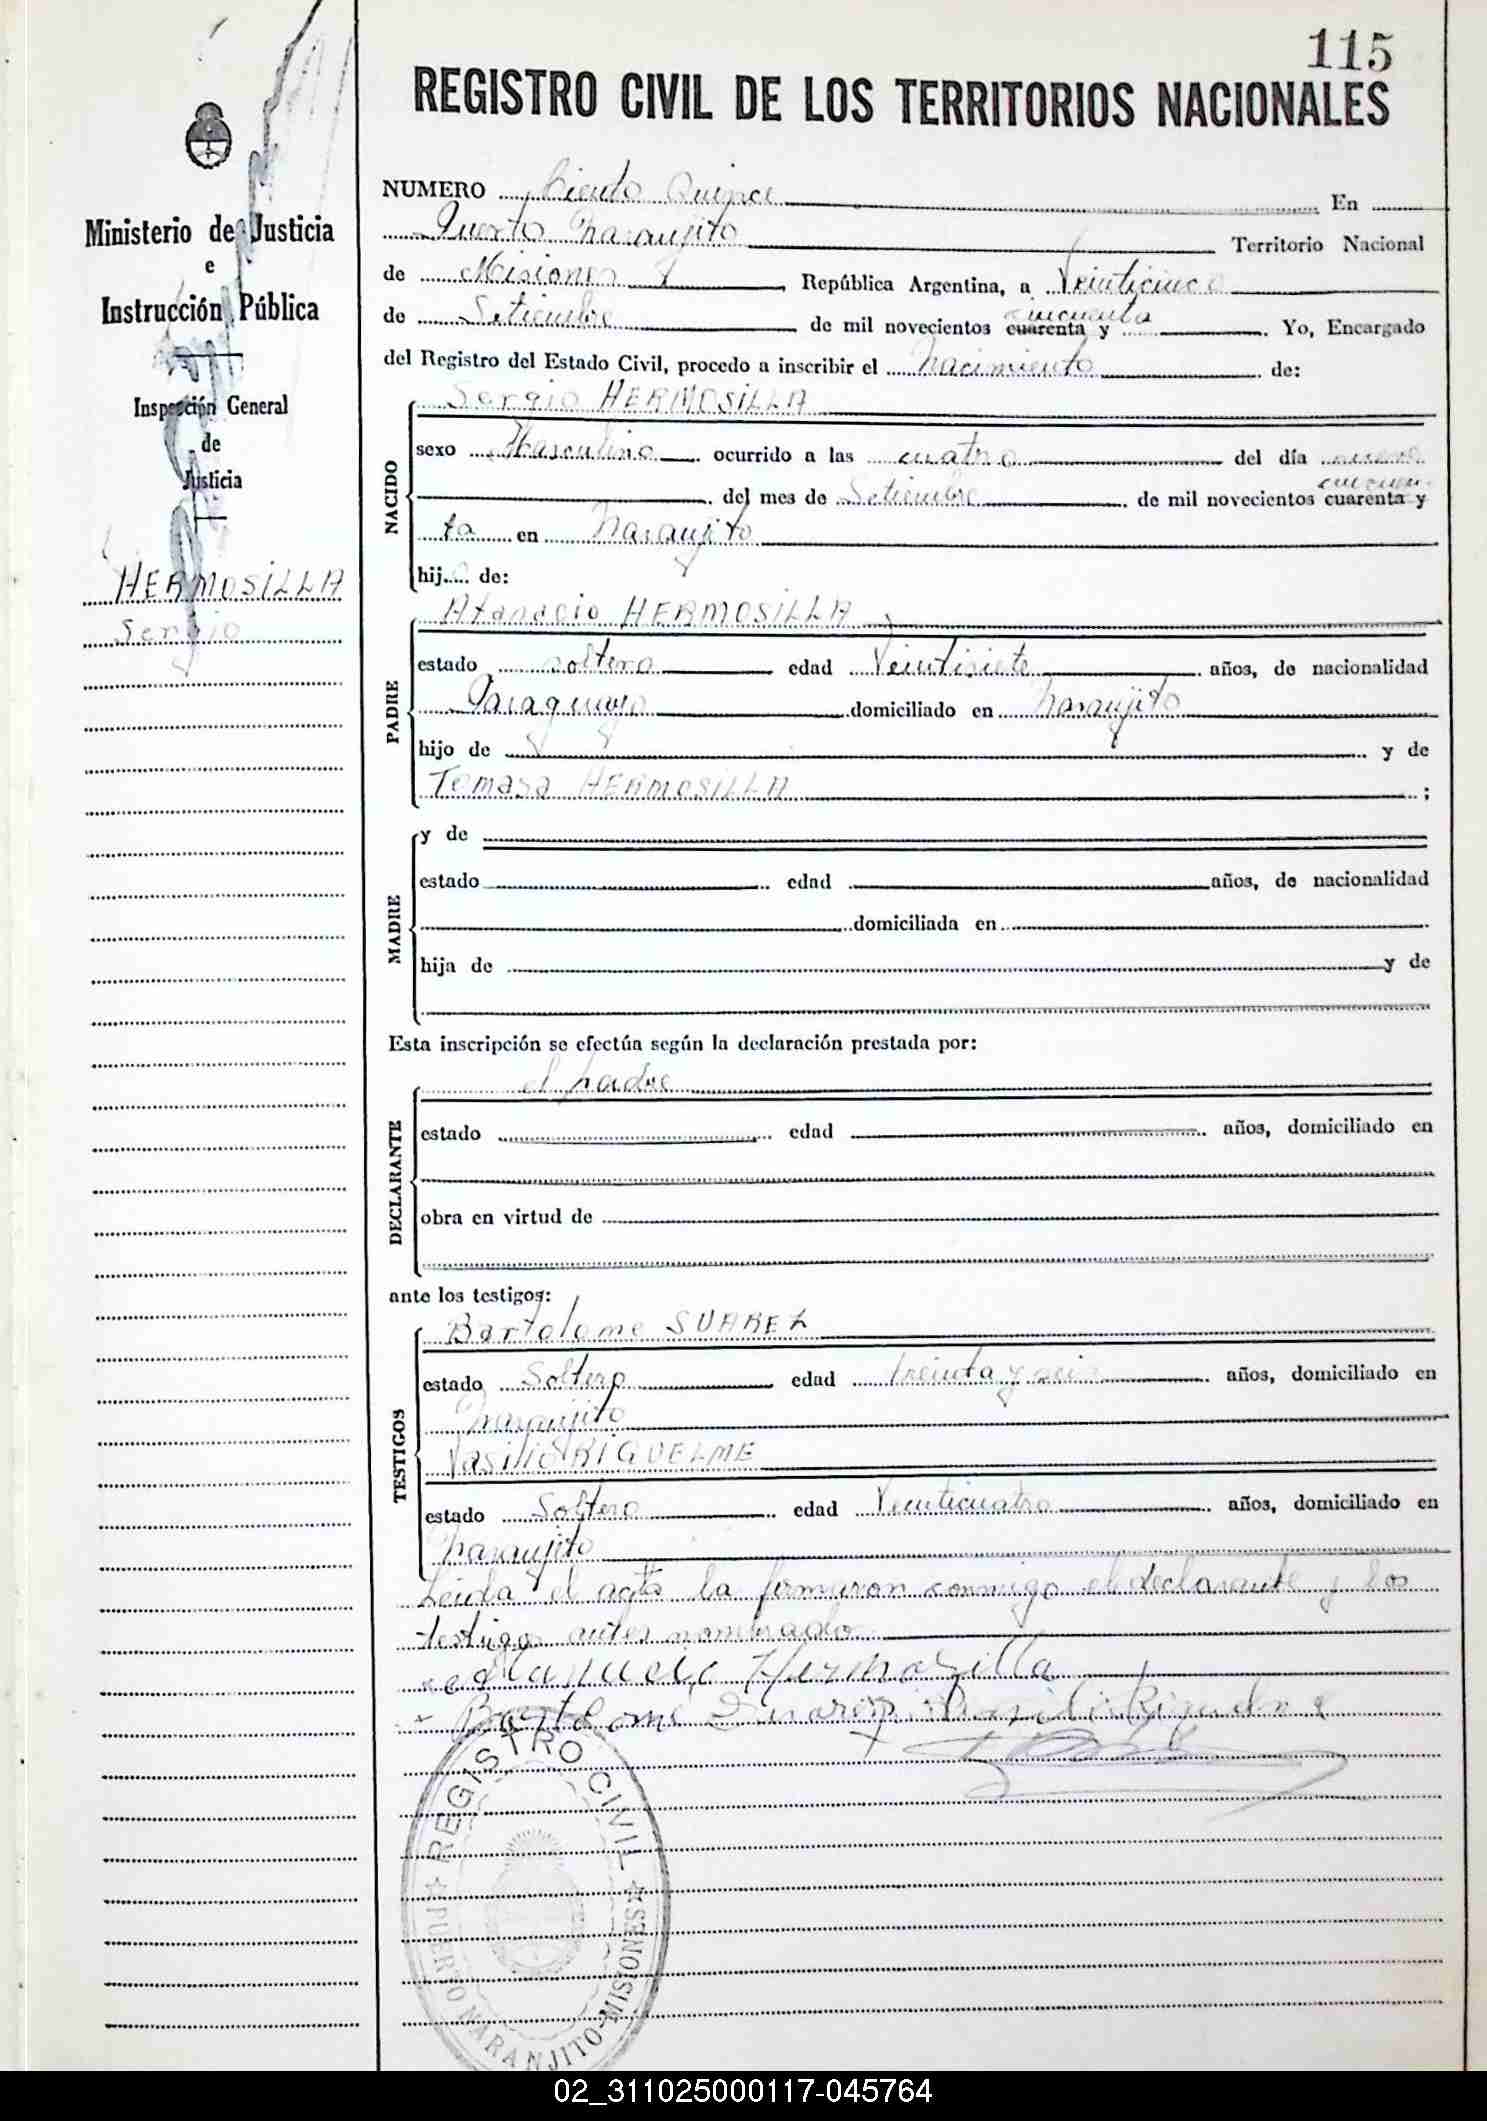 115
REGISTRO CIVIL DE LOS TERRITORIOS NACIONALES
Ministerio de Justicia
e
Instrucción Pública
Inspección General
de
Justicia
HERMOSILLA
Sergio
NUMERO Ciento Quince En
Puerto Naranjito Territorio Nacional
de Misiones, República Argentina, a Veinticinco
de Setiembre de mil novecientos cuarenta y cincuenta. Yo, Encargado
del Registro del Estado Civil, procedo a inscribir el Nacimiento de:
NACIDO
Sergio HERMOSILLA
sexo Masculino ocurrido a las cuatro del día nueve
del mes de Setiembre de mil novecientos cuarenta y cincuen-
ta en Naranjito
hijo de:
PADRE
Atanacio HERMOSILLA
estado soltero edad Veintisiete años, de nacionalidad
Paraguayo domiciliado en Naranjito
hijo de y de
Tomasa HERMOSILLA ;
MADRE
y de
estado edad años, de nacionalidad
domiciliada en
hija de y de
Esta inscripción se efectúa según la declaración prestada por:
DECLARANTE
el padre
estado edad años, domiciliado en
obra en virtud de
ante los testigos:
TESTIGOS
Bartolome SUAREZ
estado Soltero edad treinta y seis años, domiciliado en
Naranjito
Vasilio RIQUELME
estado Soltero edad Veinticuatro años, domiciliado en
Naranjito
Leida el acta la firmaron conmigo el declarante y los
testigos antes nombrado
Hermosilla
Bartolomé Suarez Riquelme
REGISTRO CIVIL
PUERTO NARANJITO-MISIONES
02_311025000117-045764